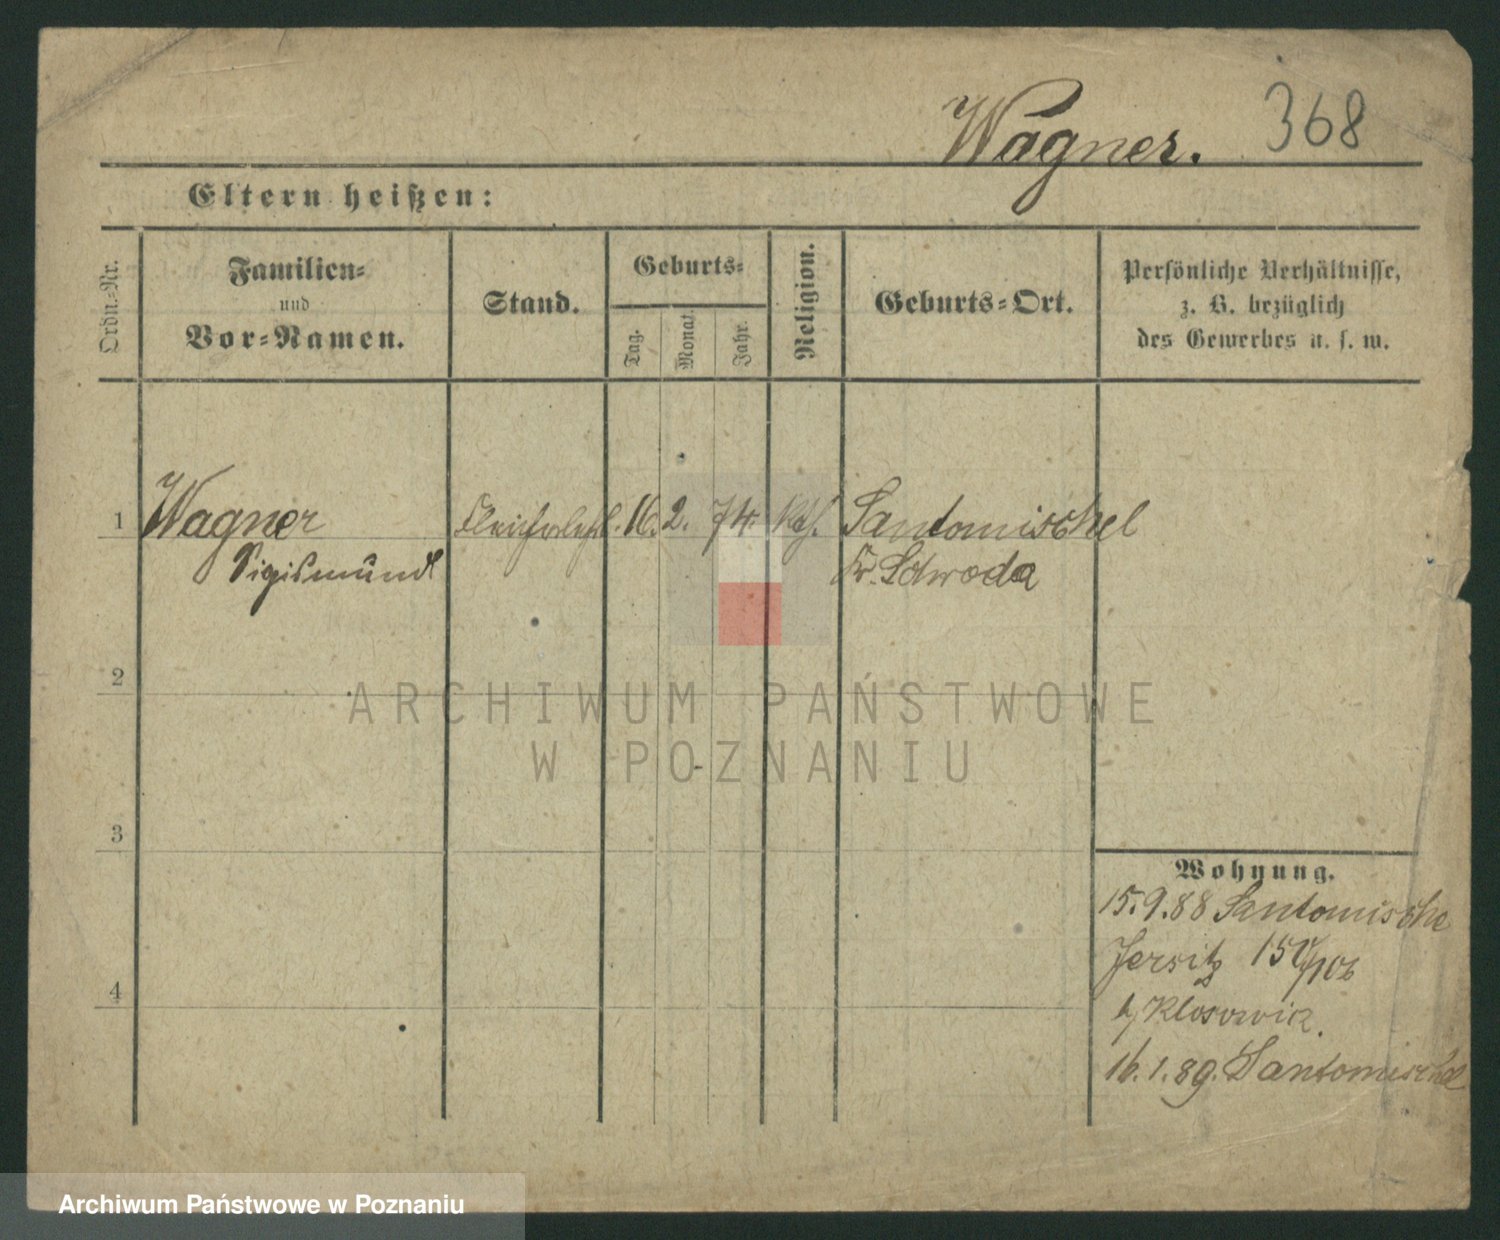 Wagner. 368
Eltern heißen:
Ordn.-Nr.
Familien-
und
Vor-Namen.
Stand.
Geburts-
Tag.
Monat.
Jahr.
Religion.
Geburts-Ort.
Persönliche Verhältnisse,
z. B. bezüglich
des Gewerbes u. s. w.
1 Wagner 16. 2. 74. Kth. Santomischel
Sigismund Kr. Schroda
2
ARCHIWUM PAŃSTWOWE
W POZNANIU
3
Wohnung.
15.9.88 Santomische
Jersitz
4
b/ Klosowick.
16.1.89. Santomischel
Archiwum Państwowe w Poznaniu